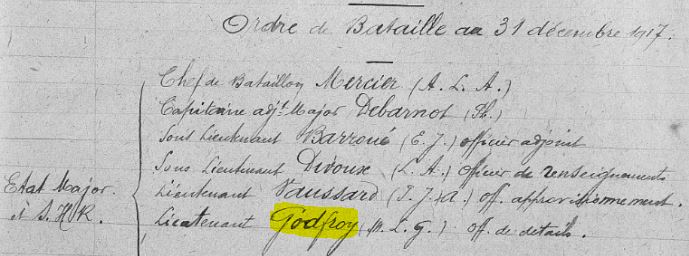 Ordre de Bataille au 31 décembre 1917.
Chef de Bataillon Mercier (A. L. A.)
Capitaine adjt Major Debarnot (Ph.)
Sous Lieutenant Barroué (E. J.) officier adjoint
Sous Lieutenant Divoux (L. A.) officier de renseignements
Etat Major. Lieutenant Vaussard (J. J. A.) off. approvisionnement.
et S. H. R. Lieutenant Godfroy (M. L. G.) off. de détails.